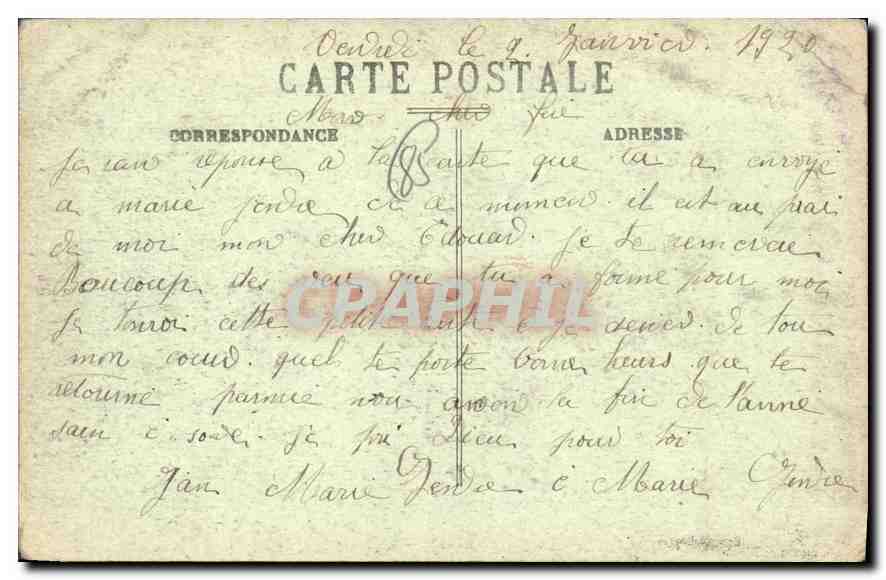 Vendredi le 9 Janvier. 1920
CARTE POSTALE
Mon cher
CORRESPONDANCE
ADRESSE
85
Je reponse à la carte que tu a envoye
a marie Gendre et a il est au
de moi mon cher Edouard. je te
Beaucoup des veu que tu a forme pour moi
CPAPHIL
Je cette petit carte e je de tou
mon coeur. quel te porte bone heurs que te
retourne parmie nou avon la fin de l'anné
sain e je pri Dieu pour toi
Jan Marie Gendre e Marie Gendre